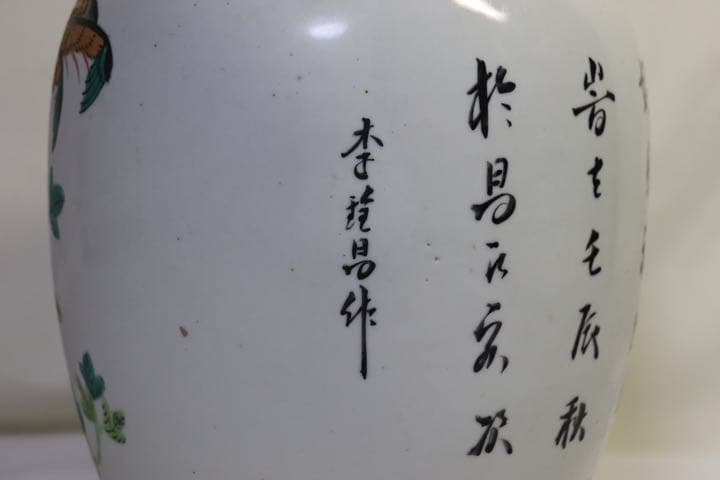 旹在壬辰秋
於昌江客次
李昌作